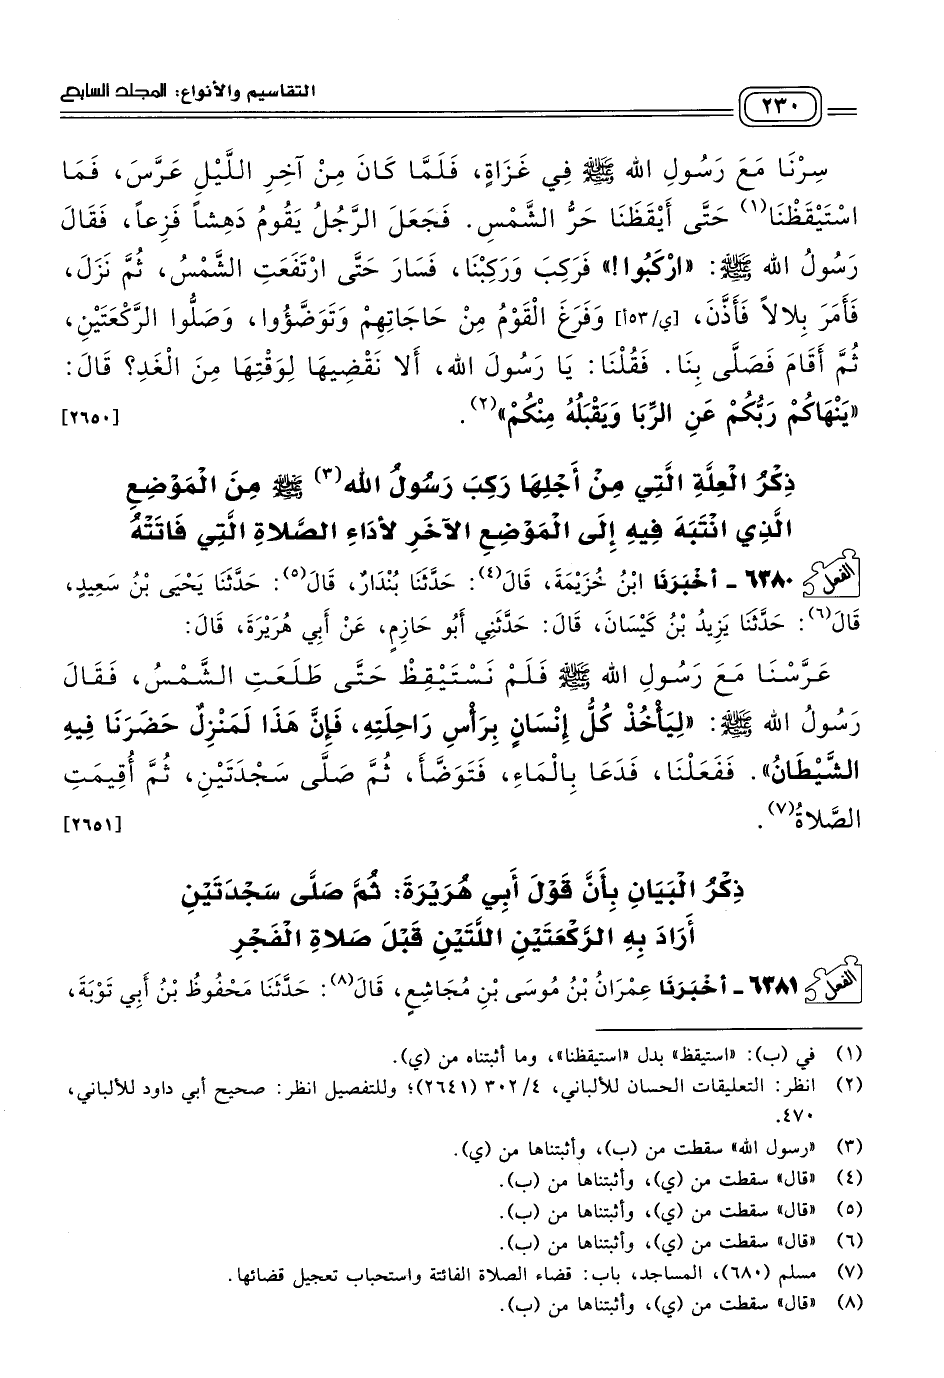 التقاسيم والأنواع: المجلد السابع
٢٣٠
سِرْنَا مَعَ رَسُولِ الله ﷺ فِي غَزَاةٍ، فَلَمَّا كَانَ مِنْ آخِرِ اللَّيْلِ عَرَّسَ، فَمَا
اسْتَيْقَظْنَا(١) حَتَّى أَيْقَظَنَا حَرُّ الشَّمْسِ. فَجَعَلَ الرَّجُلُ يَقُومُ دَهِشاً فَزِعاً، فَقَالَ
رَسُولُ الله ﷺ: «ارْكَبُوا!» فَرَكِبَ وَرَكِبْنَا، فَسَارَ حَتَّى ارْتَفَعَتِ الشَّمْسُ، ثُمَّ نَزَلَ،
فَأَمَرَ بِلالاً فَأَذَّنَ، [ي/٥٣أ] وَفَرَغَ الْقَوْمُ مِنْ حَاجَاتِهِمْ وَتَوَضَّؤُوا، وَصَلُّوا الرَّكْعَتَيْنِ،
ثُمَّ أَقَامَ فَصَلَّى بِنَا. فَقُلْنَا: يَا رَسُولَ الله، أَلا نَقْضِيهَا لِوَقْتِهَا مِنَ الْغَدِ؟ قَالَ:
«يَنْهَاكُمْ رَبُّكُمْ عَنِ الرِّبَا وَيَقْبَلُهُ مِنْكُمْ»(٢). [٢٦٥٠]
ذِكْرُ الْعِلَّةِ الَّتِي مِنْ أَجْلِهَا رَكِبَ رَسُولُ الله(٣) ﷺ مِنَ الْمَوْضِعِ
الَّذِي انْتَبَهَ فِيهِ إِلَى الْمَوْضِعِ الآخَرِ لأَدَاءِ الصَّلاةِ الَّتِي فَاتَتْهُ
الفعل ٦٣٨٠ - أَخْبَرَنَا ابْنُ خُزَيْمَةَ، قَالَ(٤): حَدَّثَنَا بُنْدَارٌ، قَالَ(٥): حَدَّثَنَا يَحْيَى بْنُ سَعِيدٍ،
قَالَ(٦): حَدَّثَنَا يَزِيدُ بْنُ كَيْسَانَ، قَالَ: حَدَّثَنِي أَبُو حَازِمٍ، عَنْ أَبِي هُرَيْرَةَ، قَالَ:
عَرَّسْنَا مَعَ رَسُولِ الله ﷺ فَلَمْ نَسْتَيْقِظْ حَتَّى طَلَعَتِ الشَّمْسُ، فَقَالَ
رَسُولُ الله ﷺ: «لِيَأْخُذْ كُلُّ إِنْسَانٍ بِرَأْسِ رَاحِلَتِهِ، فَإِنَّ هَذَا لَمَنْزِلٌ حَضَرَنَا فِيهِ
الشَّيْطَانُ». فَفَعَلْنَا، فَدَعَا بِالْمَاءِ، فَتَوَضَّأَ، ثُمَّ صَلَّى سَجْدَتَيْنِ، ثُمَّ أُقِيمَتِ
الصَّلاةُ(٧). [٢٦٥١]
ذِكْرُ الْبَيَانِ بِأَنَّ قَوْلَ أَبِي هُرَيْرَةَ: ثُمَّ صَلَّى سَجْدَتَيْنِ
أَرَادَ بِهِ الرَّكْعَتَيْنِ اللَّتَيْنِ قَبْلَ صَلاةِ الْفَجْرِ
الفعل ٦٣٨١ - أَخْبَرَنَا عِمْرَانُ بْنُ مُوسَى بْنِ مُجَاشِعٍ، قَالَ(٨): حَدَّثَنَا مَحْفُوظُ بْنُ أَبِي تَوْبَةَ،
(١) في (ب): «استيقظ» بدل «استيقظنا»، وما أثبتناه من (ي).
(٢) انظر: التعليقات الحسان للألباني، ٤/ ٣٠٢ (٢٦٤١)؛ وللتفصيل انظر: صحيح أبي داود للألباني،
٤٧٠.
(٣) «رسول الله» سقطت من (ب)، وأثبتناها من (ي).
(٤) «قال» سقطت من (ي)، وأثبتناها من (ب).
(٥) «قال» سقطت من (ي)، وأثبتناها من (ب).
(٦) «قال» سقطت من (ي)، وأثبتناها من (ب).
(٧) مسلم (٦٨٠)، المساجد، باب: قضاء الصلاة الفائتة واستحباب تعجيل قضائها.
(٨) «قال» سقطت من (ي)، وأثبتناها من (ب).